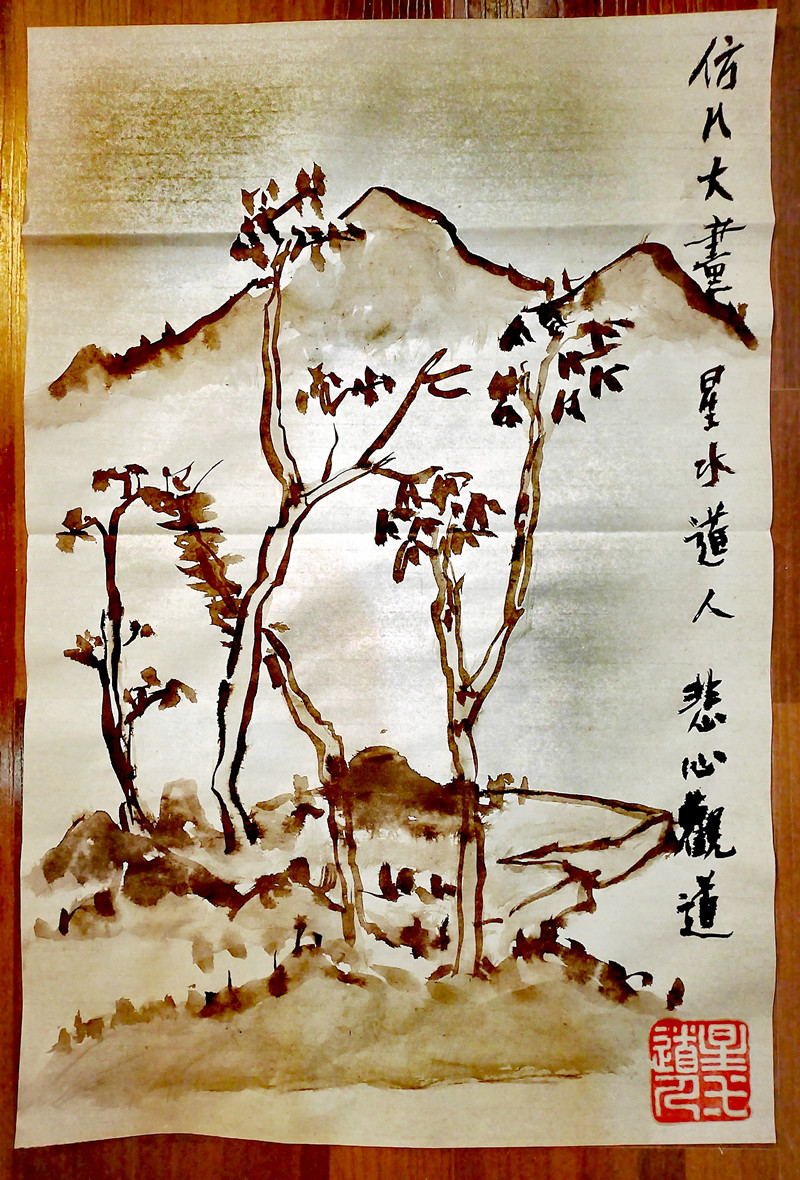 仿八大畫 星水道人 悲心觀道
星水道人